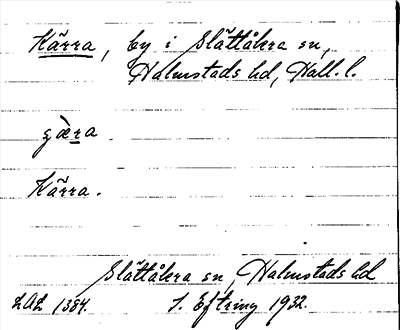 Kärra, by i Slättåkra sn,
Halmstads hd, Hall. l.
gæ̀ra.
Kärra.
Slättåkra sn, Halmstads hd
LAL 1384. J. Eftring 1932.